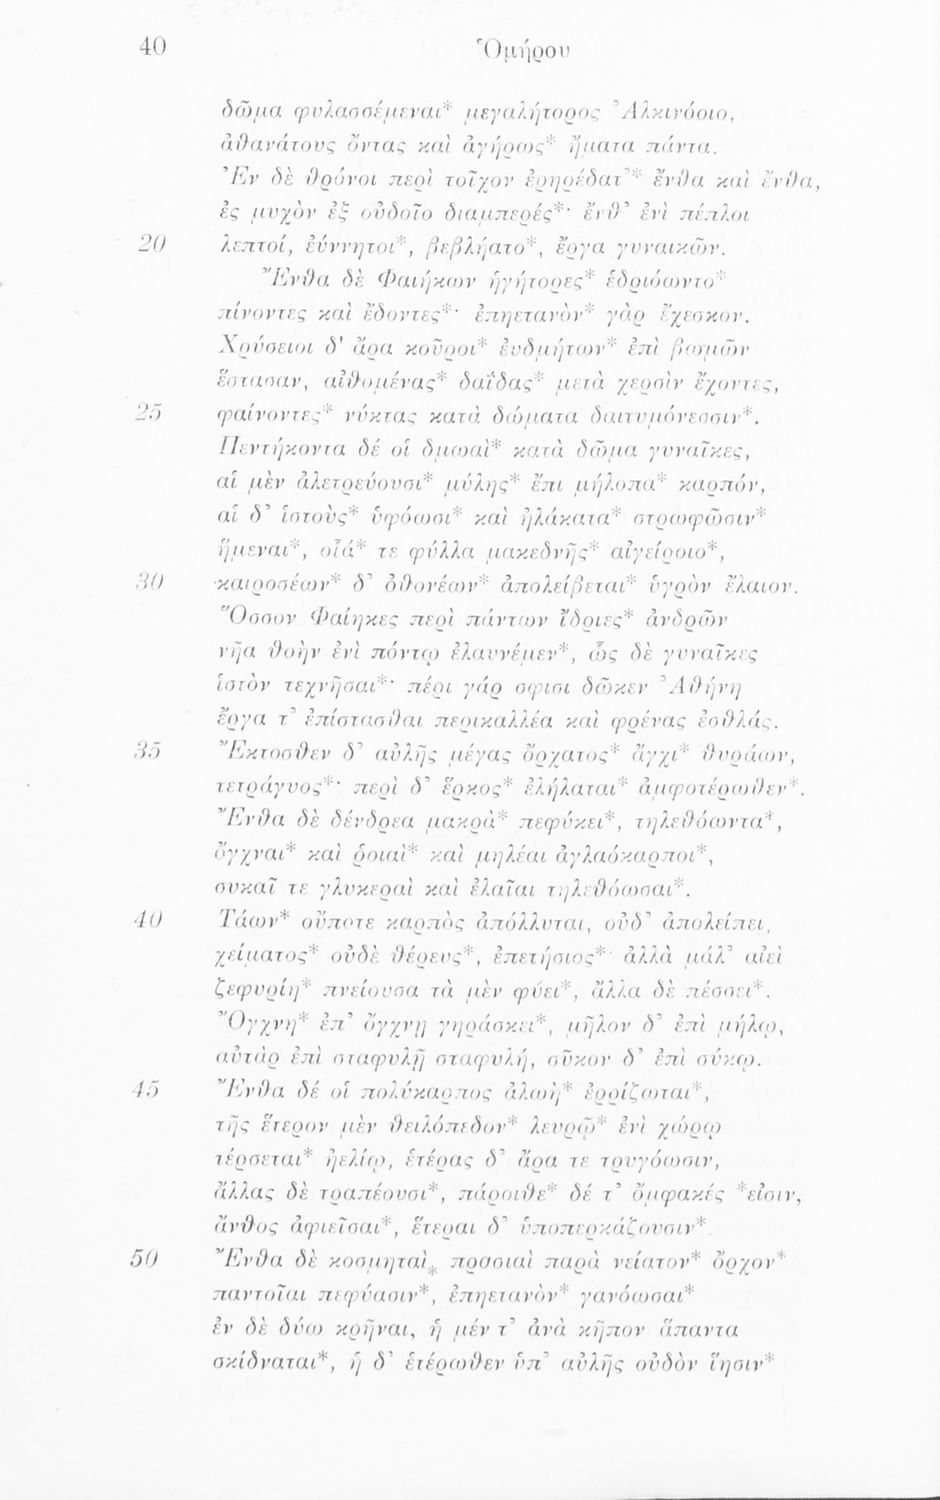 40 Ὁμήρου
δῶμα φυλασσέμεναι* μεγαλήτορος Ἀλκινόοιο,
ἀθανάτους ὄντας καὶ ἀγήρως* ἤματα πάντα.
Ἐν δὲ θρόνοι περὶ τοῖχον ἐρηρέδατ'* ἔνθα καὶ ἔνθα,
ἐς μυχὸν ἐξ οὐδοῖο διαμπερές*· ἔνθ' ἐνὶ πέπλοι
20 λεπτοί, ἐύννητοι*, βεβλήατο*, ἔργα γυναικῶν.
Ἔνθα δὲ Φαιήκων ἡγήτορες* ἑδριόωντο*
πίνοντες καὶ ἔδοντες*· ἐπηετανὸν* γὰρ ἔχεσκον.
Χρύσειοι δ' ἄρα κοῦροι* ἐυδμήτων* ἐπὶ βωμῶν
ἕστασαν, αἰθομένας* δαΐδας* μετὰ χερσὶν ἔχοντες,
25 φαίνοντες* νύκτας κατὰ δώματα δαιτυμόνεσσιν*.
Πεντήκοντα δέ οἱ δμωαὶ* κατὰ δῶμα γυναῖκες,
αἱ μὲν ἀλετρεύουσι* μύλης* ἔπι μήλοπα* καρπόν,
αἱ δ' ἱστοὺς* ὑφόωσι* καὶ ἠλάκατα* στρωφῶσιν*
ἥμεναι*, οἷά* τε φύλλα μακεδνῆς* αἰγείροιο*,
30 καιροσέων* δ' ὀθονέων* ἀπολείβεται* ὑγρὸν ἔλαιον.
Ὅσσον Φαίηκες περὶ πάντων ἴδριες* ἀνδρῶν
νῆα θοὴν ἐνὶ πόντῳ ἐλαυνέμεν*, ὣς δὲ γυναῖκες
ἱστὸν τεχνῆσαι*· πέρι γάρ σφισι δῶκεν Ἀθήνη
ἔργα τ' ἐπίστασθαι περικαλλέα καὶ φρένας ἐσθλάς.
35 Ἔκτοσθεν δ' αὐλῆς μέγας ὄρχατος* ἄγχι* θυράων,
τετράγυος*· περὶ δ' ἕρκος* ἐλήλαται* ἀμφοτέρωθεν*.
Ἔνθα δὲ δένδρεα μακρὰ* πεφύκει*, τηλεθόωντα*,
ὄγχναι* καὶ ῥοιαὶ* καὶ μηλέαι ἀγλαόκαρποι*,
συκαῖ τε γλυκεραὶ καὶ ἐλαῖαι τηλεθόωσαι*.
40 Τάων* οὔποτε καρπὸς ἀπόλλυται, οὐδ' ἀπολείπει,
χείματος* οὐδὲ θέρευς*, ἐπετήσιος*· ἀλλὰ μάλ' αἰεὶ
ζεφυρίη* πνείουσα τὰ μὲν φύει*, ἄλλα δὲ πέσσει*.
Ὄγχνη* ἐπ' ὄγχνῃ γηράσκει*, μῆλον δ' ἐπὶ μήλῳ,
αὐτὰρ ἐπὶ σταφυλῇ σταφυλή, σῦκον δ' ἐπὶ σύκῳ.
45 Ἔνθα δέ οἱ πολύκαρπος ἀλωὴ* ἐρρίζωται*,
τῆς ἕτερον μὲν θειλόπεδον* λευρῷ* ἐνὶ χώρῳ
τέρσεται* ἠελίῳ, ἑτέρας δ' ἄρα τε τρυγόωσιν,
ἄλλας δὲ τραπέουσι*, πάροιθε* δέ τ' ὄμφακές *εἰσιν,
ἄνθος ἀφιεῖσαι*, ἕτεραι δ' ὑποπερκάζουσιν*.
50 Ἔνθα δὲ κοσμηταὶ* πρασιαὶ παρὰ νείατον* ὄρχον*
παντοῖαι πεφύασιν*, ἐπηετανὸν* γανόωσαι*
ἐν δὲ δύω κρῆναι, ἡ μέν τ' ἀνὰ κῆπον ἅπαντα
σκίδναται*, ἡ δ' ἑτέρωθεν ὑπ' αὐλῆς οὐδὸν ἵησιν*